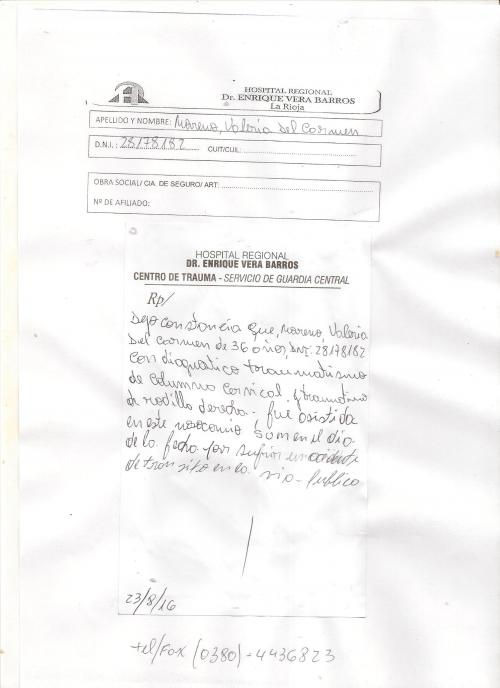 HOSPITAL REGIONAL
Dr. ENRIQUE VERA BARROS
La Rioja
APELLIDO Y NOMBRE: Moreno, Valeria Del Carmen
D.N.I.: 28178182 CUIT/CUIL:
OBRA SOCIAL/ CIA. DE SEGURO/ ART:
Nº DE AFILIADO:
HOSPITAL REGIONAL
DR. ENRIQUE VERA BARROS
CENTRO DE TRAUMA - SERVICIO DE GUARDIA CENTRAL
Rp/
Dejo constancia que, Moreno, Valeria
Del Carmen de 36 años, DNI: 28178182
con diagnostico traumatismo
de columna cervical. y traumatismo
de rodilla derecha. fue asistida
en este nosocomio, en el dia
de la fecha por sufrir un accidente
de transito en la via publica
23/8/16
tel/Fax (0380)-4436823